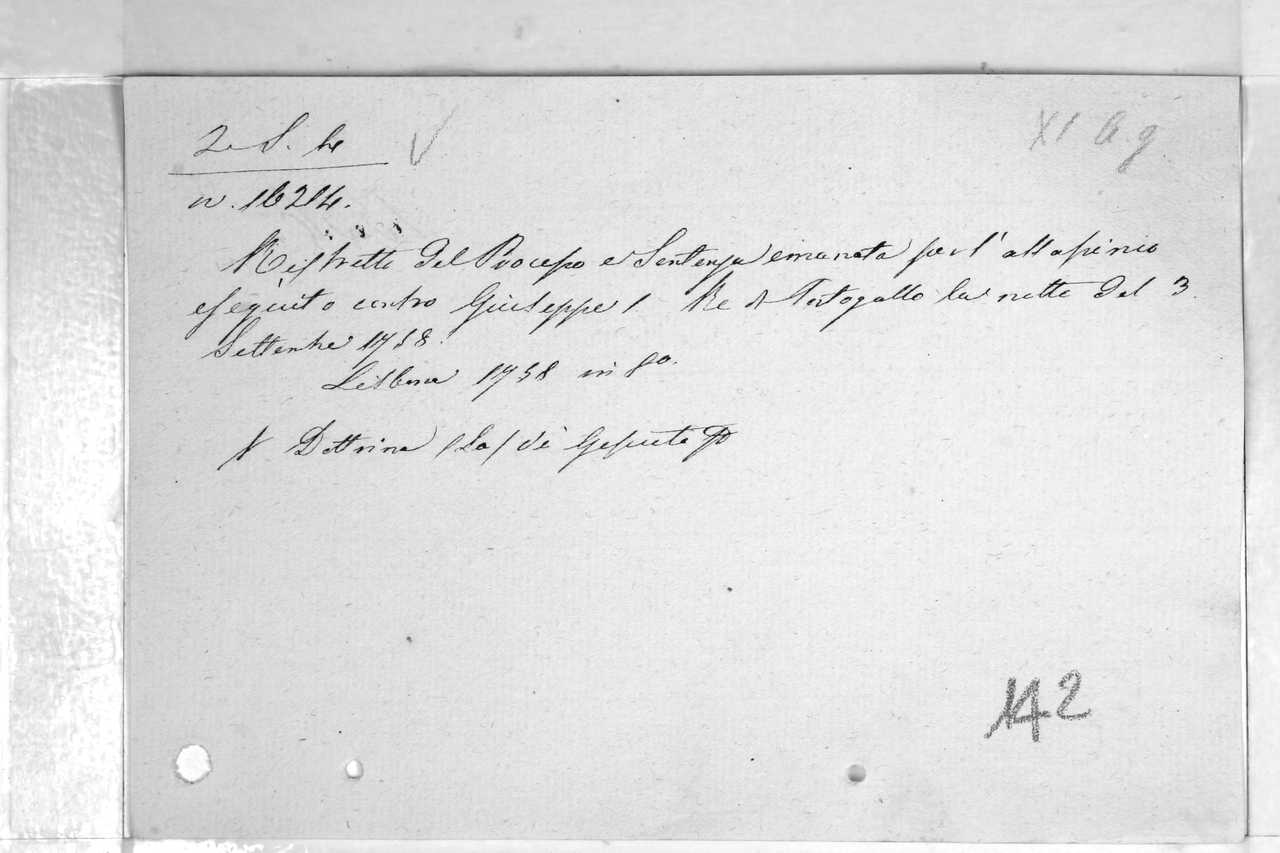 2. S. h
XI a.g
n. 16214.
Ristretto del Processo e Sentenza emanata per l'assassinio
eseguito contro Giuseppe I Re di Portogallo la notte del 3.
Settembre 1758.
Lisbona 1758 in 8o.
Dottrina (La) di Gesuiti
142